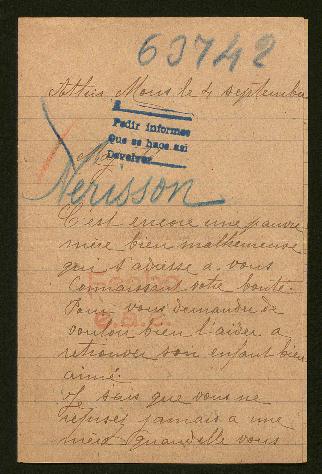 63742
Athis Mons le 4 septembre
Pedir informes
Que se hace asi
Devolver
Nerisson
C'est encore une pauvre
mère bien malheureuse
qui s'adresse a vous
Connaissant votre bonté.
Pour vous demander de
vouloir bien l'aider a
retrouver son enfant bien
aimé.
Je sais que vous ne
refusez jamais a une
mère quand elle vous